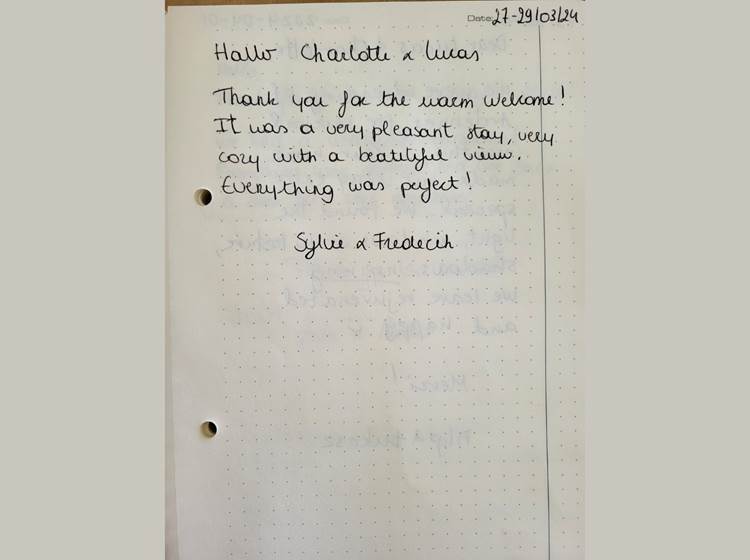 Date: 27-29/03/24
Hallo Charlotte & Lucas
Thank you for the warm welcome!
It was a very pleasant stay, very
cozy with a beatiful vieuw.
Everything was perfect!
Sylvie & Frederik